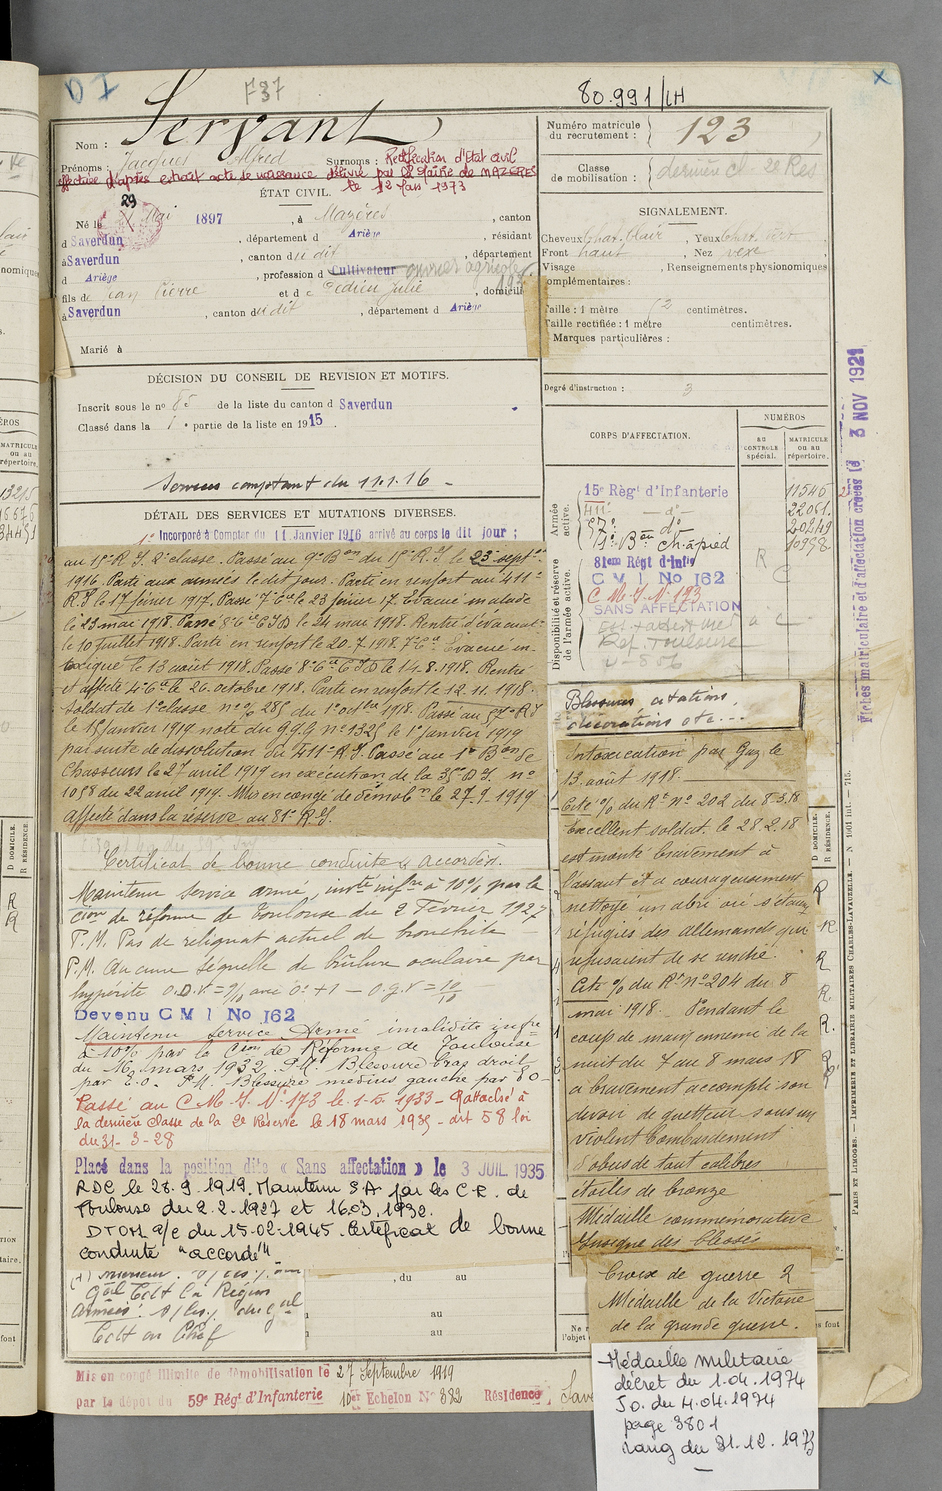 D I
F37
80.991/LH
Nom : Servant
Prénoms : Jacques Alfred Surnoms : Rectification d'Etat civil
effectuée d'après extrait acte de naissance délivré par Mr le Maire de MAZERES
le 12 1973
ÉTAT CIVIL.
29
Né le Mai 1897, à Mazères, canton
d Saverdun, département d Ariège, résidant
à Saverdun, canton du dit, département
d Ariège, profession d Cultivateur ouvrier agricole
fils de Jean Pierre et de Julie, domiciliés
à Saverdun, canton du dit, département d Ariège
Marié à
DÉCISION DU CONSEIL DE REVISION ET MOTIFS.
Inscrit sous le no de la liste du canton d Saverdun
Classé dans la 1e partie de la liste en 1915.
Services comptant du 11.1.16 -
DÉTAIL DES SERVICES ET MUTATIONS DIVERSES.
1° Incorporé à Compter du 11 Janvier 1916 arrivé au corps le dit jour ;
au 15e R.I. 2e classe. Passé au 9e Bon du 15e R.I. le 23 septbre
1916. Parti aux armées le dit jour. Parti en renfort au 411e
R.I. le 17 février 1917. Passé 7e Cie le 23 février 17. Evacué malade
le 23 mai 1918. Passé 8e Cie C.I.D. le 24 mai 1918. Rentré d'évacuat
le 10 juillet 1918. Parti en renfort le 20.7.1918. 7e Cie. Evacué in-
toxiqué le 13 août 1918. Passé 8e Cie C.I.D. le 14.8.1918. Rentré
et affecté 4e Cie le 26 octobre 1918. Parti en renfort le 12.11.1918.
Soldat de 1e classe no % 285 du 1er octbre 1918. Passé au 57e R.I
le 15 janvier 1919 note du G.Q.G no 1325 le 1er janvier 1919
par suite de dissolution du 411e R.I. Passé au 1er Bon de
Chasseurs le 27 avril 1919 en exécution de la 35e D.I. no
1058 du 22 avril 1919. Mis en congé de démobon le 27.9.1919
Affecté dans la réserve au 81e R.I.
Certificat de bonne conduite « accordé ».
Maintenu service armé, invté infre à 10% par la
Cion de réforme de Toulouse du 2 Février 1927
P.M. Pas de reliquat actuel de bronchite -
P.M. Aucune séquelle de brûlure oculaire par
hypérite O.D.V = 9/10 avec 0: +1 - O.G.V = 10/10
Devenu C M I No 162
Maintenu service Armé invalidité infre
à 10% par la Cion de Réforme de Toulouse
du 16 mars 1932. P.M. Blessure bras droit
par E.O. P.M. Blessure médius gauche par E O -
Passé au C.M.I. No 173 le 1-5-1933 - Rattaché à
la dernière classe de la 2e Réserve le 18 mars 1935 - art 58 loi
du 31-3-28
Placé dans la position dite « Sans affectation » le 3 JUIL 1935
RDC le 28.9.1919. Maintenu S.A par les C.R. de
Toulouse du 2.2.1927 et 16.03.1932.
DTOM a/c du 15-02-1945. Certificat de bonne
conduite "accordé"
Région
Armées :
Cdt en Chef
, du au
au
au
Mis en congé illimité de démobilisation le 27 Septembre 1919
par le dépôt du 59e Régt d'Infanterie 10e Echelon No 382 Résidence
Numéro matricule du recrutement : 123
Classe de mobilisation : dernière cl. 2e Res
SIGNALEMENT.
Cheveux Chat. Clair, Yeux Chat. Vert
Front haut, Nez vexe,
Visage , Renseignements physionomiques
complémentaires :
Taille : 1 mètre 62 centimètres.
Taille rectifiée : 1 mètre centimètres.
Marques particulières :
Degré d'instruction : 3
CORPS D'AFFECTATION.
NUMÉROS
AU CONTROLE spécial.
MATRICULE ou au répertoire.
Armée active.
15e Règt d'Infanterie 11545
411e -d°- 22061
57e d° 20249
1er Bon Ch. à pied 10938
Disponibilité et réserve de l'armée active.
81eme Régt d'Infie
C M I No 162
C M. I. N. 173
SANS AFFECTATION
Ref. Toulouse
Blessures, citations,
décorations etc...
Intoxication par Gaz le
13 août 1918.
Cité % du Rt no 202 du 8.3.18
Excellent soldat. le 28.2.18
est monté bravement à
l'assaut et a courageusement
nettoyé un abri où s'étaient
réfugiés des allemands qui
refusaient de se rendre.
Cité % du Rt no 204 du 8
mai 1918. Pendant le
coup de main ennemi de la
nuit du 7 au 8 mars 18
a bravement accompli son
devoir de guetteur sous un
violent bombardement
d'obus de tout calibres
étoiles de bronze
Médaille commémorative
Insigne des blessés
Croix de guerre 2
Médaille de la Victoire
de la grande guerre.
Médaille militaire
décret du 1.04.1974
J.O. du 4.04.1974
page 3801
rang du 31.12.1973
Fiches matriculaire et d'affectation créées le 3 NOV 1921
PARIS ET LIMOGES. — IMPRIMERIE ET LIBRAIRIE MILITAIRES CHARLES-LAVAUZELLE. — N 1001 int. — 715.
D DOMICILE.
R RÉSIDENCE.